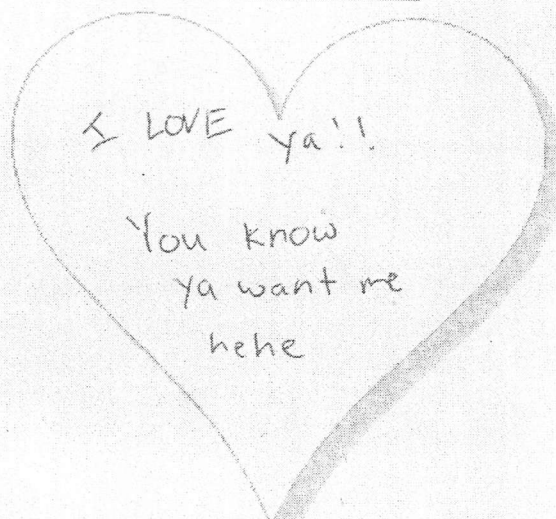 I LOVE ya!!
You know
ya want me
hehe